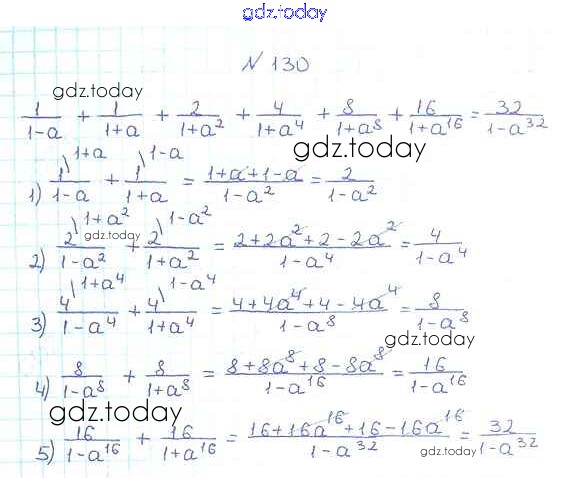 gdz.today
N 130
gdz.today
1/(1-a) + 1/(1+a) + 2/(1+a²) + 4/(1+a⁴) + 8/(1+a⁸) + 16/(1+a¹⁶) = 32/(1-a³²)
gdz.today
1) 1\1+a/(1-a) + 1\1-a/(1+a) = (1+a+1-a)/(1-a²) = 2/(1-a²)
2) 2\1+a²/(1-a²) + 2\1-a²/(1+a²) = (2+2a²+2-2a²)/(1-a⁴) = 4/(1-a⁴)
gdz.today
3) 4\1+a⁴/(1-a⁴) + 4\1-a⁴/(1+a⁴) = (4+4a⁴+4-4a⁴)/(1-a⁸) = 8/(1-a⁸)
gdz.today
4) 8/(1-a⁸) + 8/(1+a⁸) = (8+8a⁸+8-8a⁸)/(1-a¹⁶) = 16/(1-a¹⁶)
gdz.today
5) 16/(1-a¹⁶) + 16/(1+a¹⁶) = (16+16a¹⁶+16-16a¹⁶)/(1-a³²) = 32/(1-a³²)
gdz.today